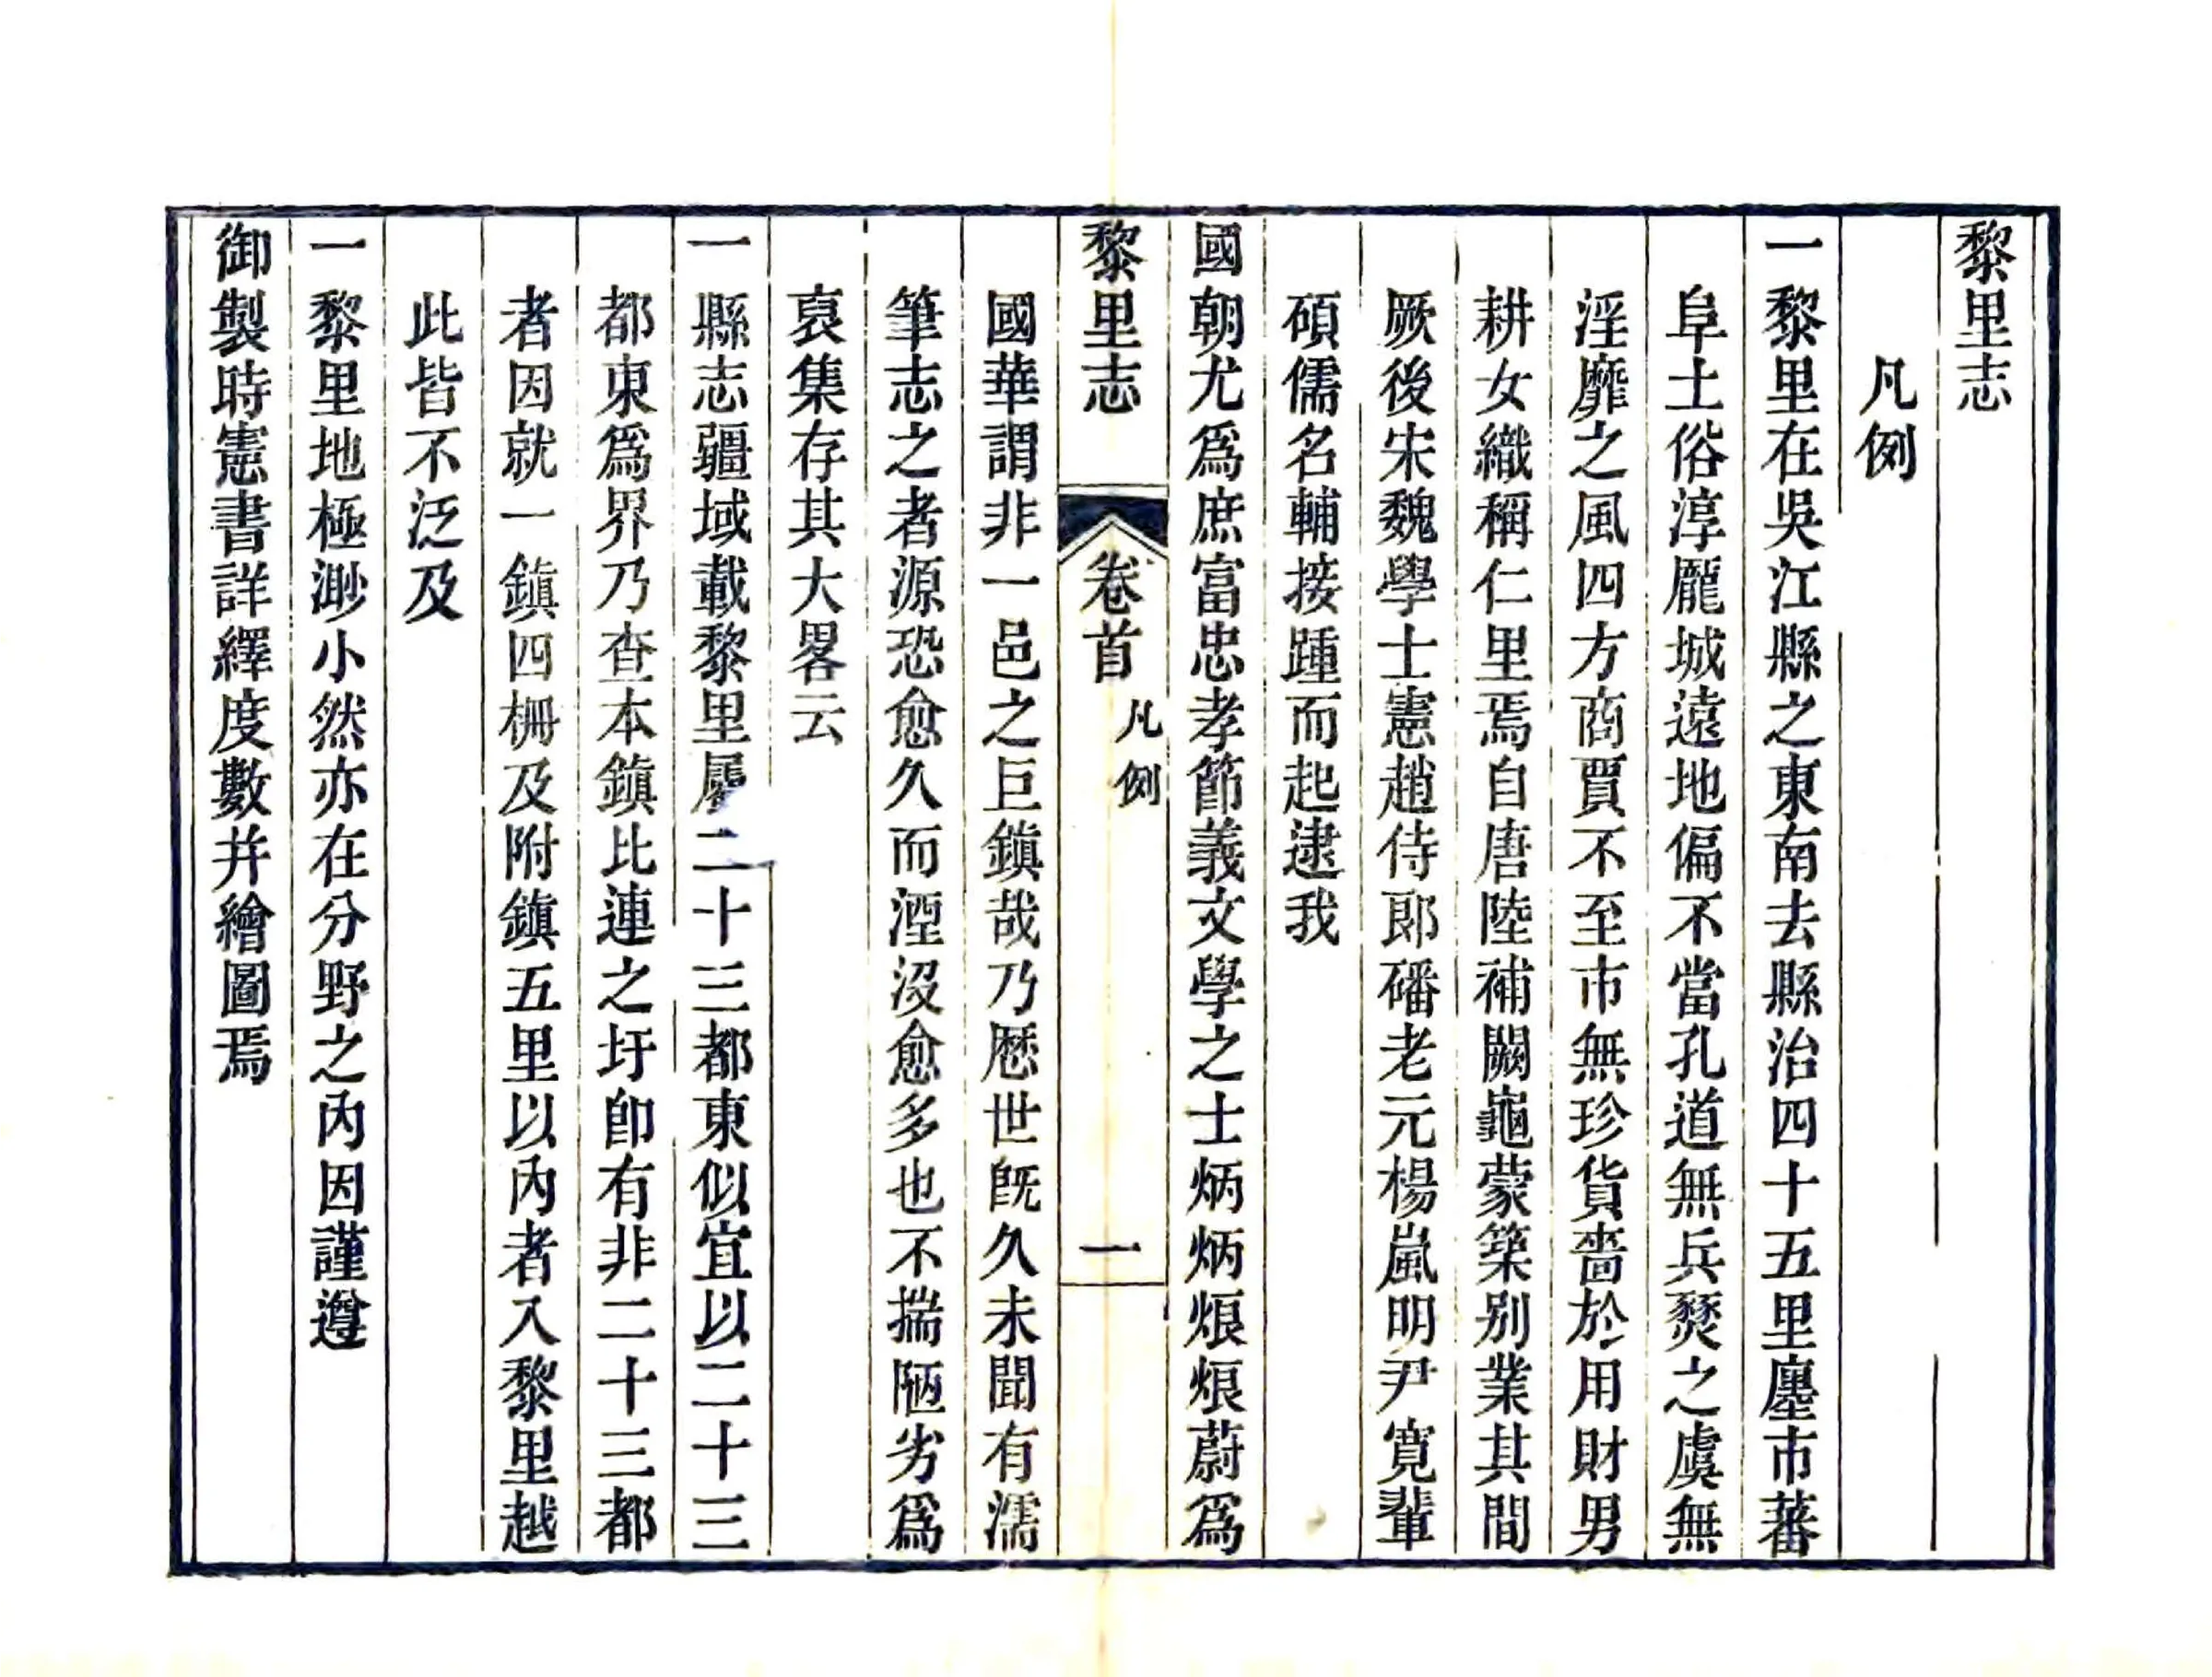 黎里志
凡例
一黎里在吳江縣之東南去縣治四十五里廛市蕃
阜土俗淳龐城遠地偏不當孔道無兵燹之虞無
淫靡之風四方商賈不至市無珍貨嗇於用財男
耕女織稱仁里焉自唐陸補闕龜蒙築别業其間
厥後宋魏學士憲趙侍郎磻老元楊嵐明尹寬輩
碩儒名輔接踵而起逮我
國朝尤爲庶富忠孝節義文學之士炳炳烺烺蔚爲
黎里志 卷首 凡例 一
國華謂非一邑之巨鎮哉乃歷世旣久未聞有濡
筆志之者源恐愈久而湮沒愈多也不揣陋劣爲
裒集存其大畧云
一縣志疆域載黎里屬二十三都東似宜以二十三
都東爲界乃查本鎮比連之圩卽有非二十三都
者因就一鎮四柵及附鎮五里以內者入黎里越
此皆不泛及
一黎里地極渺小然亦在分野之內因謹遵
御製時憲書詳繹度數并繪圖焉